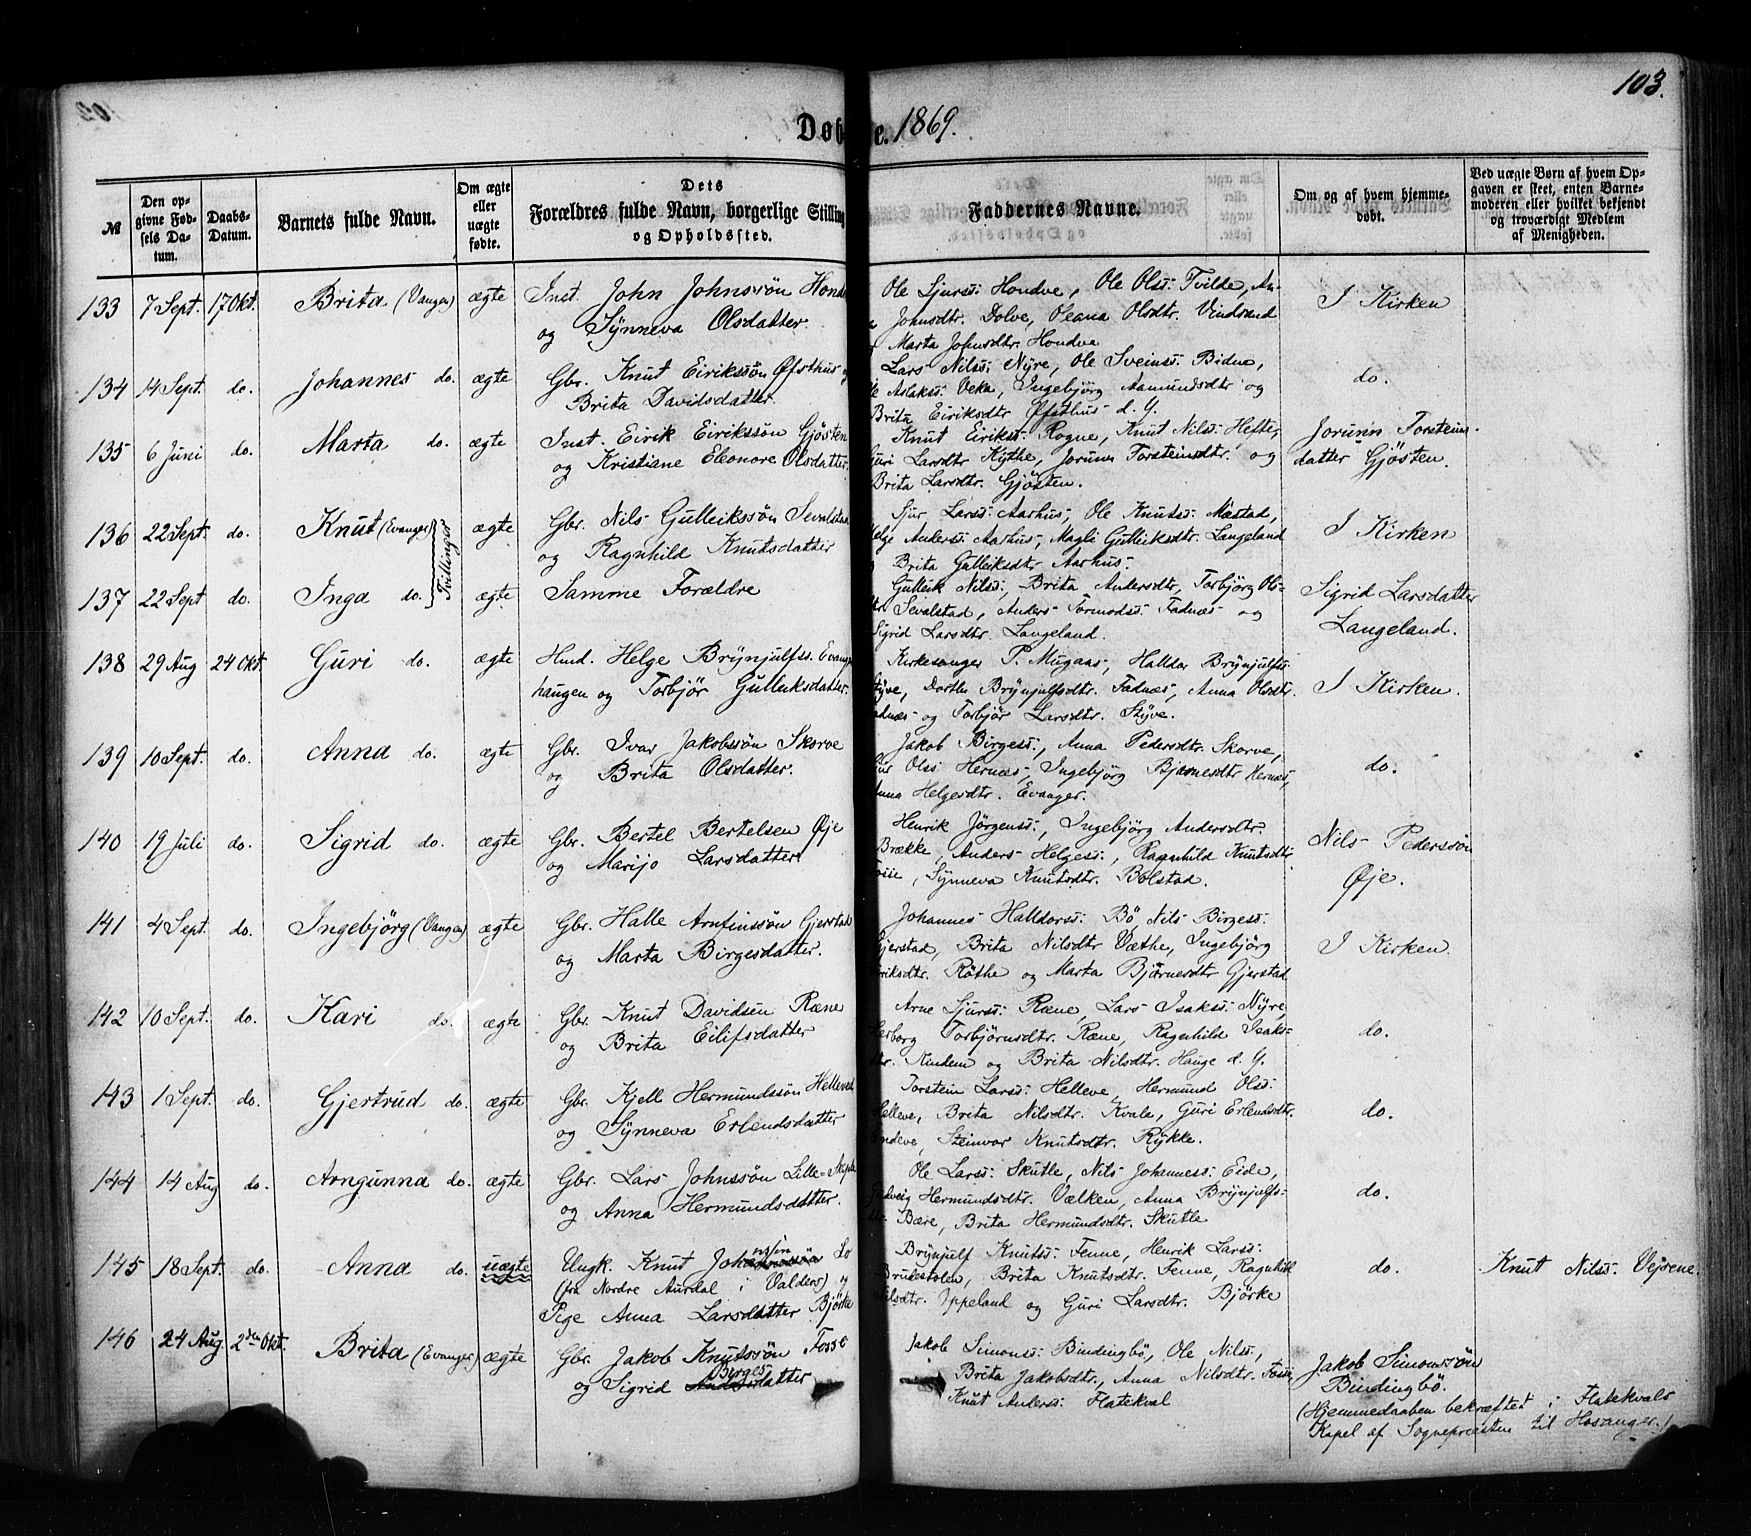 103.
Døbte. 1869.
№
Den opgivne Fødsels Datum.
Daabs-Datum.
Barnets fulde Navn.
Om ægte eller uægte fødte.
Dets Forældres fulde Navn, borgerlige Stilling og Opholdssted.
Faddernes Navne.
Om og af hvem hjemmedøbt.
Ved uægte Børn af hvem Opgaven er skeet, enten Barnemoderen eller hvilket bekjendt og troværdigt Medlem af Menigheden.
133 7 Sept. 17 Okt. Brita (Vangen) ægte
Inst. John Johnssøn
og Synneva Olsdatter.
Ole Sjurss: Hondve, Ole Olss: Tvilde,
Johnsdtr. Dolve, Oleana Olsdtr. Vindsand
Marta Johnsdtr. Hondve
I Kirken
134 14 Sept. do. Johannes do. ægte
Gbr. Knut Eirikssøn Øfsthus
Brita Davidsdatter.
Lars Nilss: Nyre, Ole Sveinss: Bidne,
Aslakss: Veka, Ingebjörg Aamundsdtr og
Brita Eiriksdtr Øfsthus d. Y.
do.
135 6 Juni do. Marta do. ægte
Inst. Eirik Eirikssøn Gjøsten
og Kristiane Eleonore Olsdatter.
Knut Eirikss: Rogne, Knut Nilss: Hefte,
Guri Larsdtr Kythe, Jorunn Torsteinsdtr. og
Brita Larsdtr. Gjøsten.
Jorunn Torsteinsdatter Gjøsten.
136 22 Sept. do. Knut (Evanger) ægte
Tvillinger
Gbr. Nils Gulleikssøn
og Ragnhild Knutsdatter
Sjur Larss: Aarhus, Ole Knutss: Mæstad,
Helge Anderss: Aarhus, Magli Gulleiksdtr. Langeland
Brita Gulleiksdtr Aarhus.
I Kirken
137 22 Sept do. Inga do. ægte.
Samme Forældre
Gulleik Nilss:, Brita Andersdtr, Torbjörg Ols-
dtr. Sevalstad, Anders Tormodss: Fadnæs og
Sigrid Larsdtr. Langeland.
Sigrid Larsdatter
Langeland.
138 29 Aug 24 Okt. Guri do. ægte
Hmd. Helge Brynjulfss. Evanger
haugen og Torbjør Gulleiksdatter.
Kirkesanger P. Mugaas, Halldor Brynjulfss:
Styve, Dorthe Brynjulfsdtr. Fadnæs, Anna Olsdtr.
Fadnæs og Torbjör Larsdtr. Styve.
I Kirken.
139 10 Sept. do. Anna do. ægte
Gbr. Ivar Jakobssøn Skorve
og Brita Olsdatter.
Jakob Birgess:, Anna Pedersdtr. Skorve,
Olss Hernæs, Ingebjörg Bjarnesdtr Hernæs,
Anna Helgesdtr. Evanger.
do.
140 19 Juli do. Sigrid do. ægte
Gbr. Bertel Bertelsen Øje
og Marijo Larsdatter
Henrik Jörgenss:, Ingebjörg Andersdtr.
Brække, Anders Helgess:, Ragnhild Knutsdtr
Synneva Knutsdtr. Bolstad.
Nils Pederssøn
Øje.
141 4 Sept. do. Ingebjörg (Vangen) ægte
Gbr. Halle Arnfinssøn Gjerstad
og Marta Birgesdatter.
Johannes Halldorss: Bö, Nils Birgess:
Gjerstad, Brita Nilsdtr Væthe, Ingebjörg
Eiriksdtr. Röthe og Marta Bjørnesdtr Gjerstad
I Kirken.
142 10 Sept. do. Kari do. ægte
Gbr. Knut Davidsen Ræne
og Brita Eilifsdatter
Arne Sjurss: Ræne, Lars Isakss: Nyre,
Herborg Torbjörnsdtr. Ræne, Ragnhild Isaks-
dtr. Kindem og Brita Nilsdtr. Hauge d. Y.
do.
143 1 Sept. do. Gjertrud do. ægte
Gbr. Kjell Hermundssøn Helleve
og Synneva Erlendsdatter
Torstein Larss: Helleve, Hermund Olss:
Helleve, Brita Nilsdtr. Kvale, Guri Erlendsdtr.
Steinvor Knutsdtr. Rykke.
do.
144 14 Aug do. Arngunna do. ægte
Gbr. Lars Johnssøn Lille-
og Anna Hermundsdatter.
Ole Larss: Skutle, Nils Johanness: Eide,
Hermundsdtr. Vælken, Anna Brynjulfs-
dtr. Bære, Brita Hermundsdtr. Skutle
do.
145 18 Sept. do. Anna do. uægte
Ungk. Knut
(fra Nordre Aurdal i Valders)
Pige Anna Larsdatter Bjørke
Brynjulf Knutss: Fenne, Henrik Larss:
Brukestolen, Brita Knutsdtr. Fenne, Ragnhild
Nilsdtr. Uppeland og Guri Larsdtr. Bjørke
do.
Knut Nilss. Vejrene.
146 24 Aug. 2den Okt. Brita (Evanger) ægte
Gbr. Jakob Knutssøn Fosse
og Sigrid Birgesdatter
Jakob Simonss: Bindingbø, Ole Nilss,
Brita Jakobsdtr., Anna Nilsdtr. Fosse,
Knut Anderss: Flatekval
Jakob Simonssøn
Bindingbø.
(Hjemmedaaben bekræftet i Flatekvals
Kapel af Sognepræsten til Hosanger.)